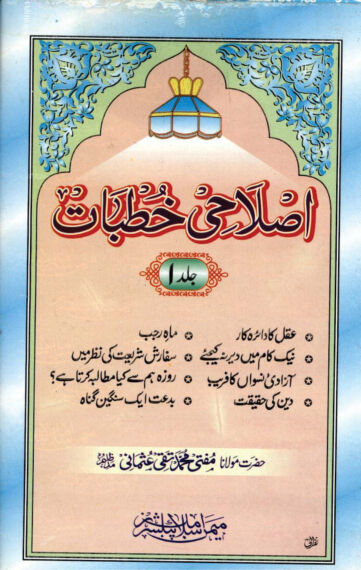 اصلاحی خطبات
جلد ۱
عقل کا دائرہ کار
ماہِ رجب
نیک کام میں دیر نہ کیجئے
سفارش شریعت کی نظر میں
آزادیٔ نسواں کا فریب
روزہ ہم سے کیا مطالبہ کرتا ہے؟
دین کی حقیقت
بدعت ایک سنگین گناہ
حضرت مولانا مفتی محمد تقی عثمانی مدظلہم
میمن اسلامک پبلشرز